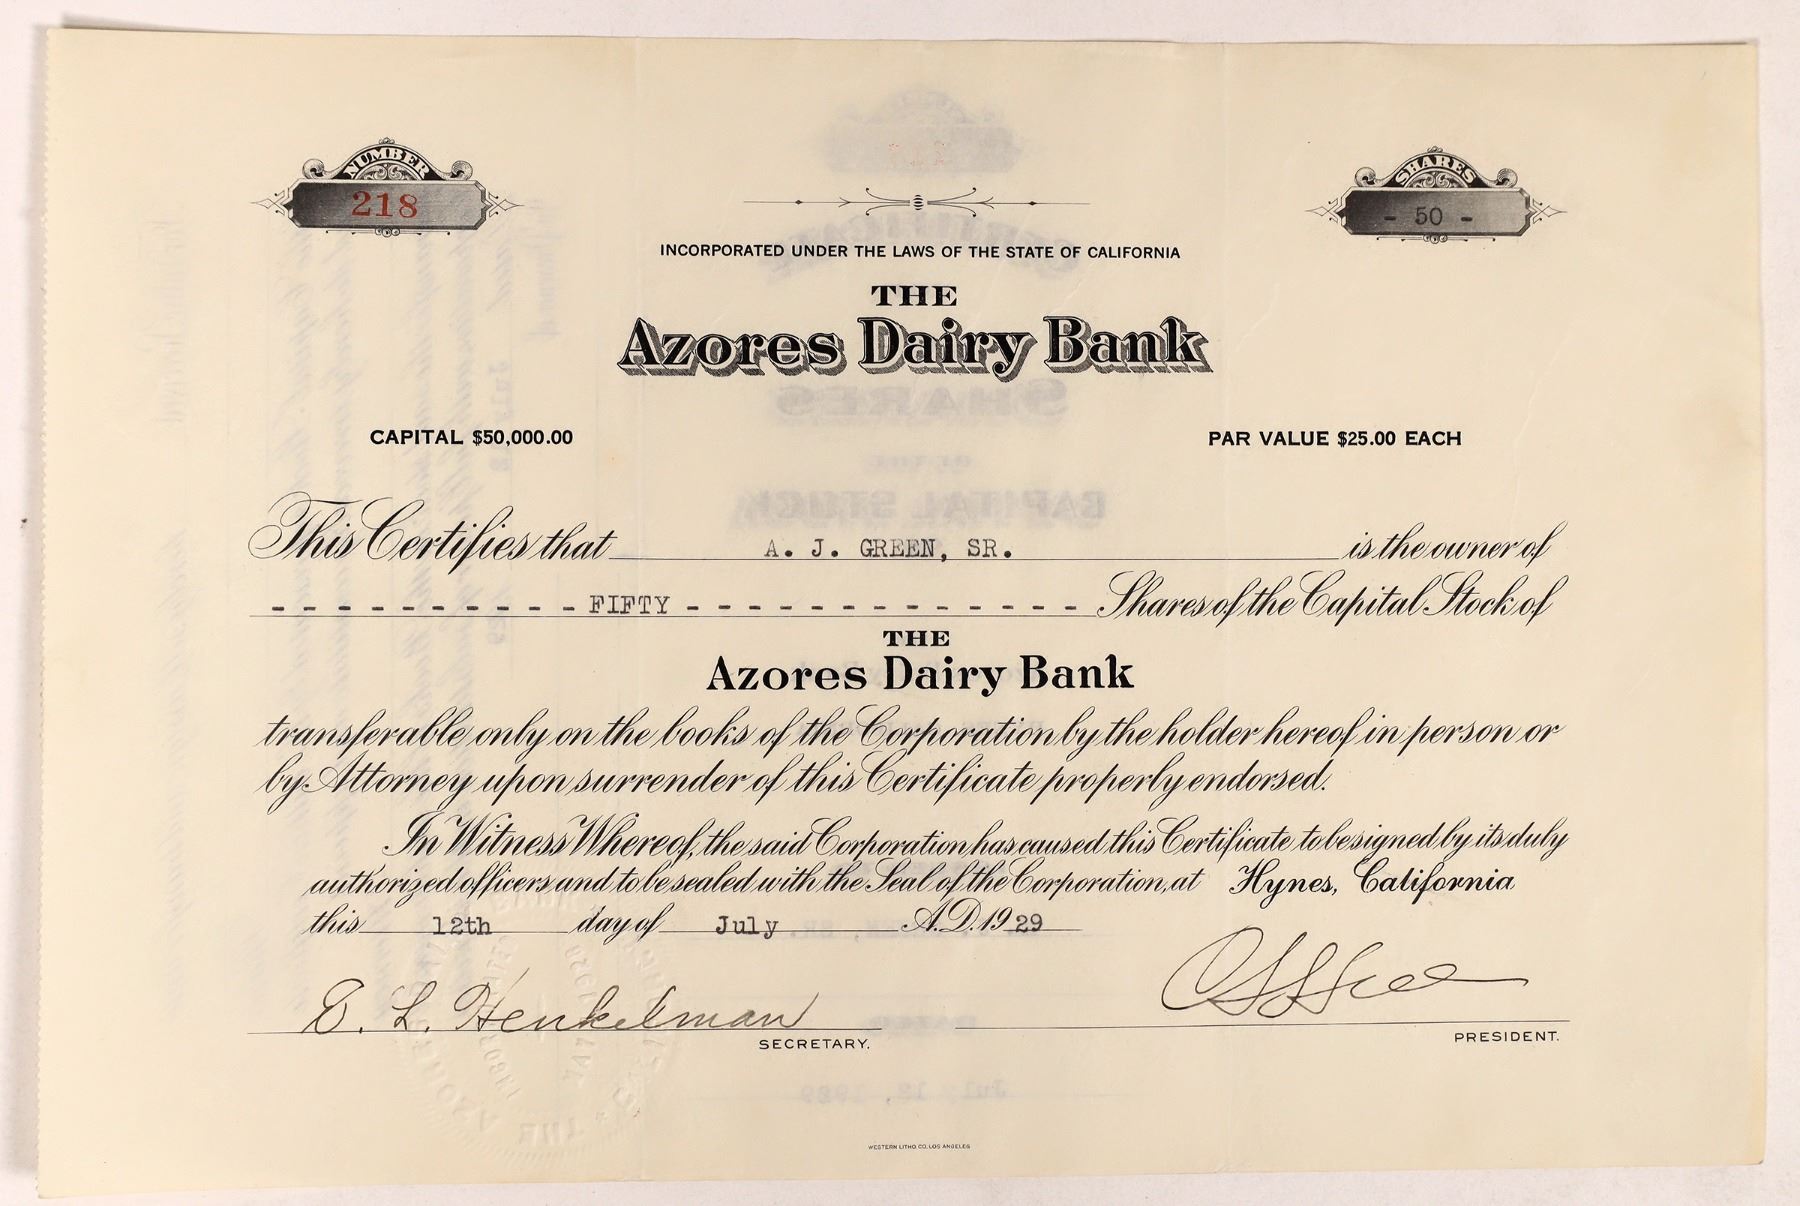 NUMBER
218
SHARES
- 50 -
INCORPORATED UNDER THE LAWS OF THE STATE OF CALIFORNIA
THE
Azores Dairy Bank
CAPITAL $50,000.00
PAR VALUE $25.00 EACH
This Certifies that A. J. GREEN, SR. is the owner of
- - - - - - - - - - FIFTY - - - - - - - - - - - - - Shares of the Capital Stock of
THE
Azores Dairy Bank
transferable only on the books of the Corporation by the holder hereof in person or
by Attorney upon surrender of this Certificate properly endorsed.
In Witness Whereof, the said Corporation has caused this Certificate to be signed by its duly
authorized officers and to be sealed with the Seal of the Corporation, at Hynes, California
this 12th day of July A.D. 19 29
E. L. Henkelman
SECRETARY.
PRESIDENT.
WESTERN LITHO. CO. LOS ANGELES